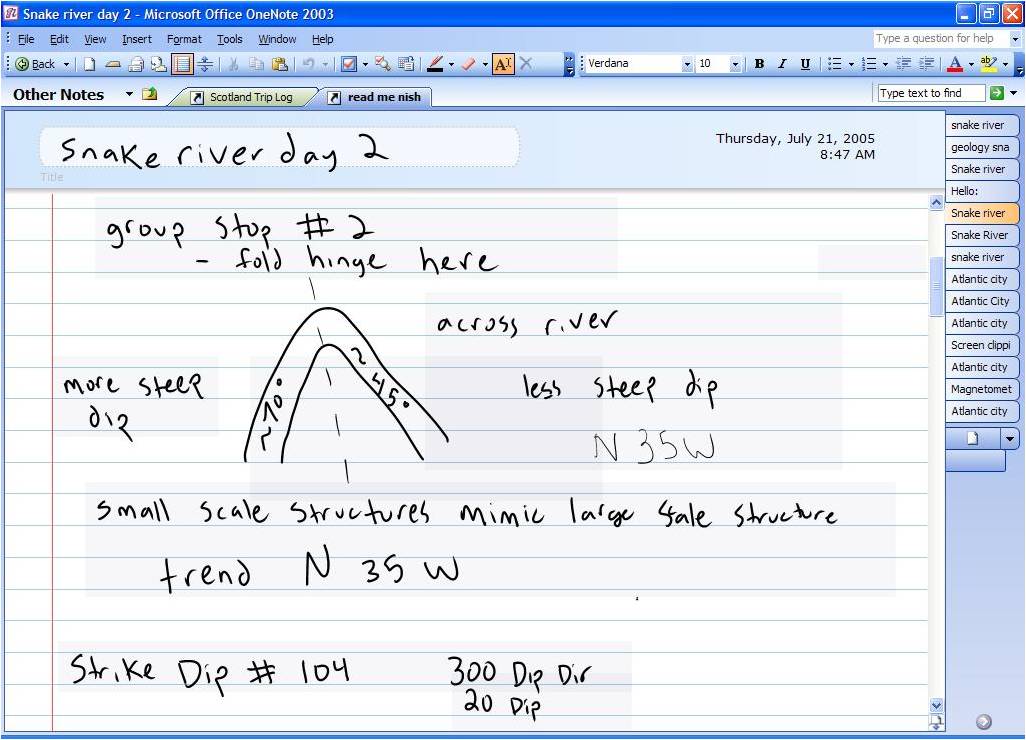 Snake river day 2 - Microsoft Office OneNote 2003
File Edit View Insert Format Tools Window Help
Type a question for help
Back
Verdana 10 B I U
Other Notes Scotland Trip Log read me nish
Type text to find
Snake river day 2
Title
Thursday, July 21, 2005
8:47 AM
group stop # 2
- fold hinge here
across river
more steep
dip
less steep dip
N 35 W
~70°
~45°
small scale structures mimic large scale structure
trend N 35 W
Strike Dip # 104
300 Dip Dir
20 Dip
snake river
geology sna
Snake river
Hello:
Snake river
Snake River
snake river
Atlantic city
Atlantic City
Atlantic city
Screen clippi
Atlantic city
Magnetomet
Atlantic city